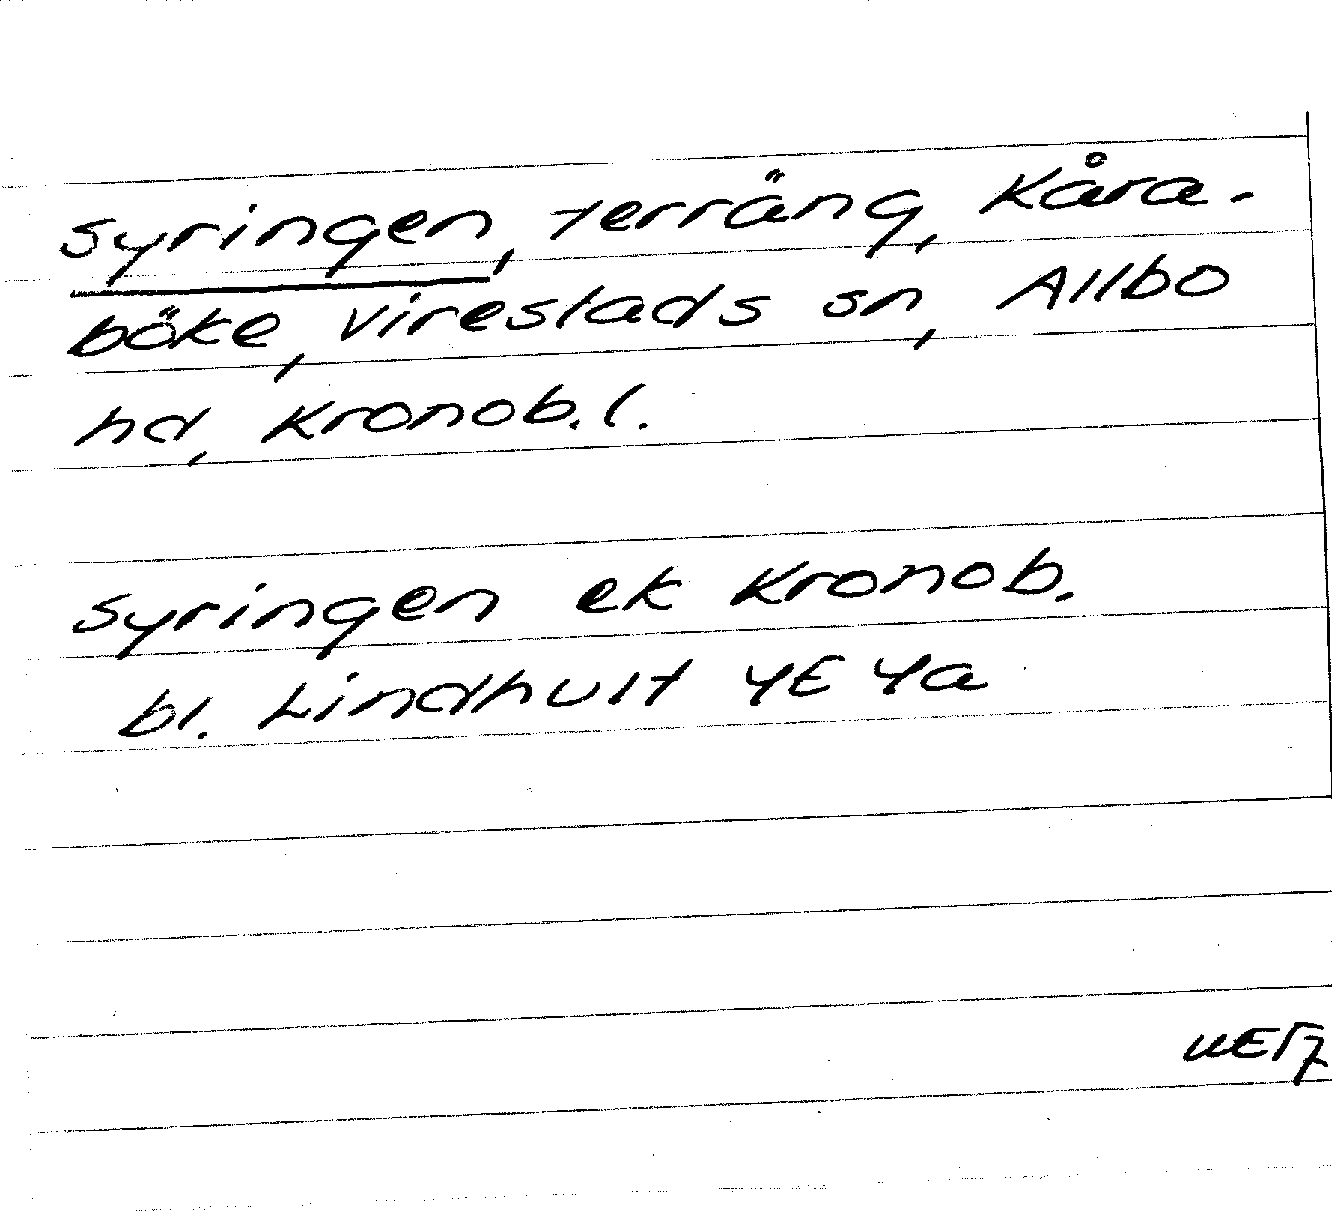 Syringen, terräng, Kåra-
böke, Virestads sn, Allbo
hd, Kronob. l.
Syringen ek Kronob.
bl. Lindhult 4E 4a